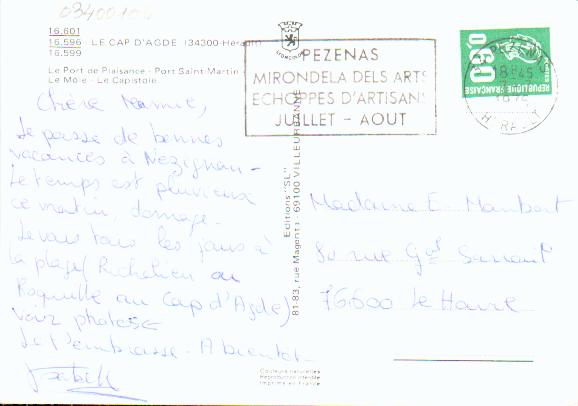 03400106
16.601
16.596 - LE CAP D'AGDE (34300-Hérault)
16.599
Le Port de Plaisance - Port Saint-Martin
Le Môle - Le Capistole
Chère Mamie,
Je passe de bonnes
vacances à Nezignan -
Le temps est pluvieux
ce matin, dommage.
Je vais tous les jours à
la plage (Richelieu ou
Roquille au Cap d'Agde)
voir photos
Je t'embrasse. A bientôt.
PEZENAS
MIRONDELA DELS ARTS
ECHOPPES D'ARTISANS
JUILLET - AOUT
PEZENAS
18 H 45
HERAULT
0,60
REPUBLIQUE FRANÇAISE
POSTES
Editions "SL"
81-83, rue Magenta - 69100 VILLEURBANNE
Madame E.
80 rue Gal Sarrail
76600 Le Havre
Couleurs naturelles
Reproduction interdite
Imprimé en France